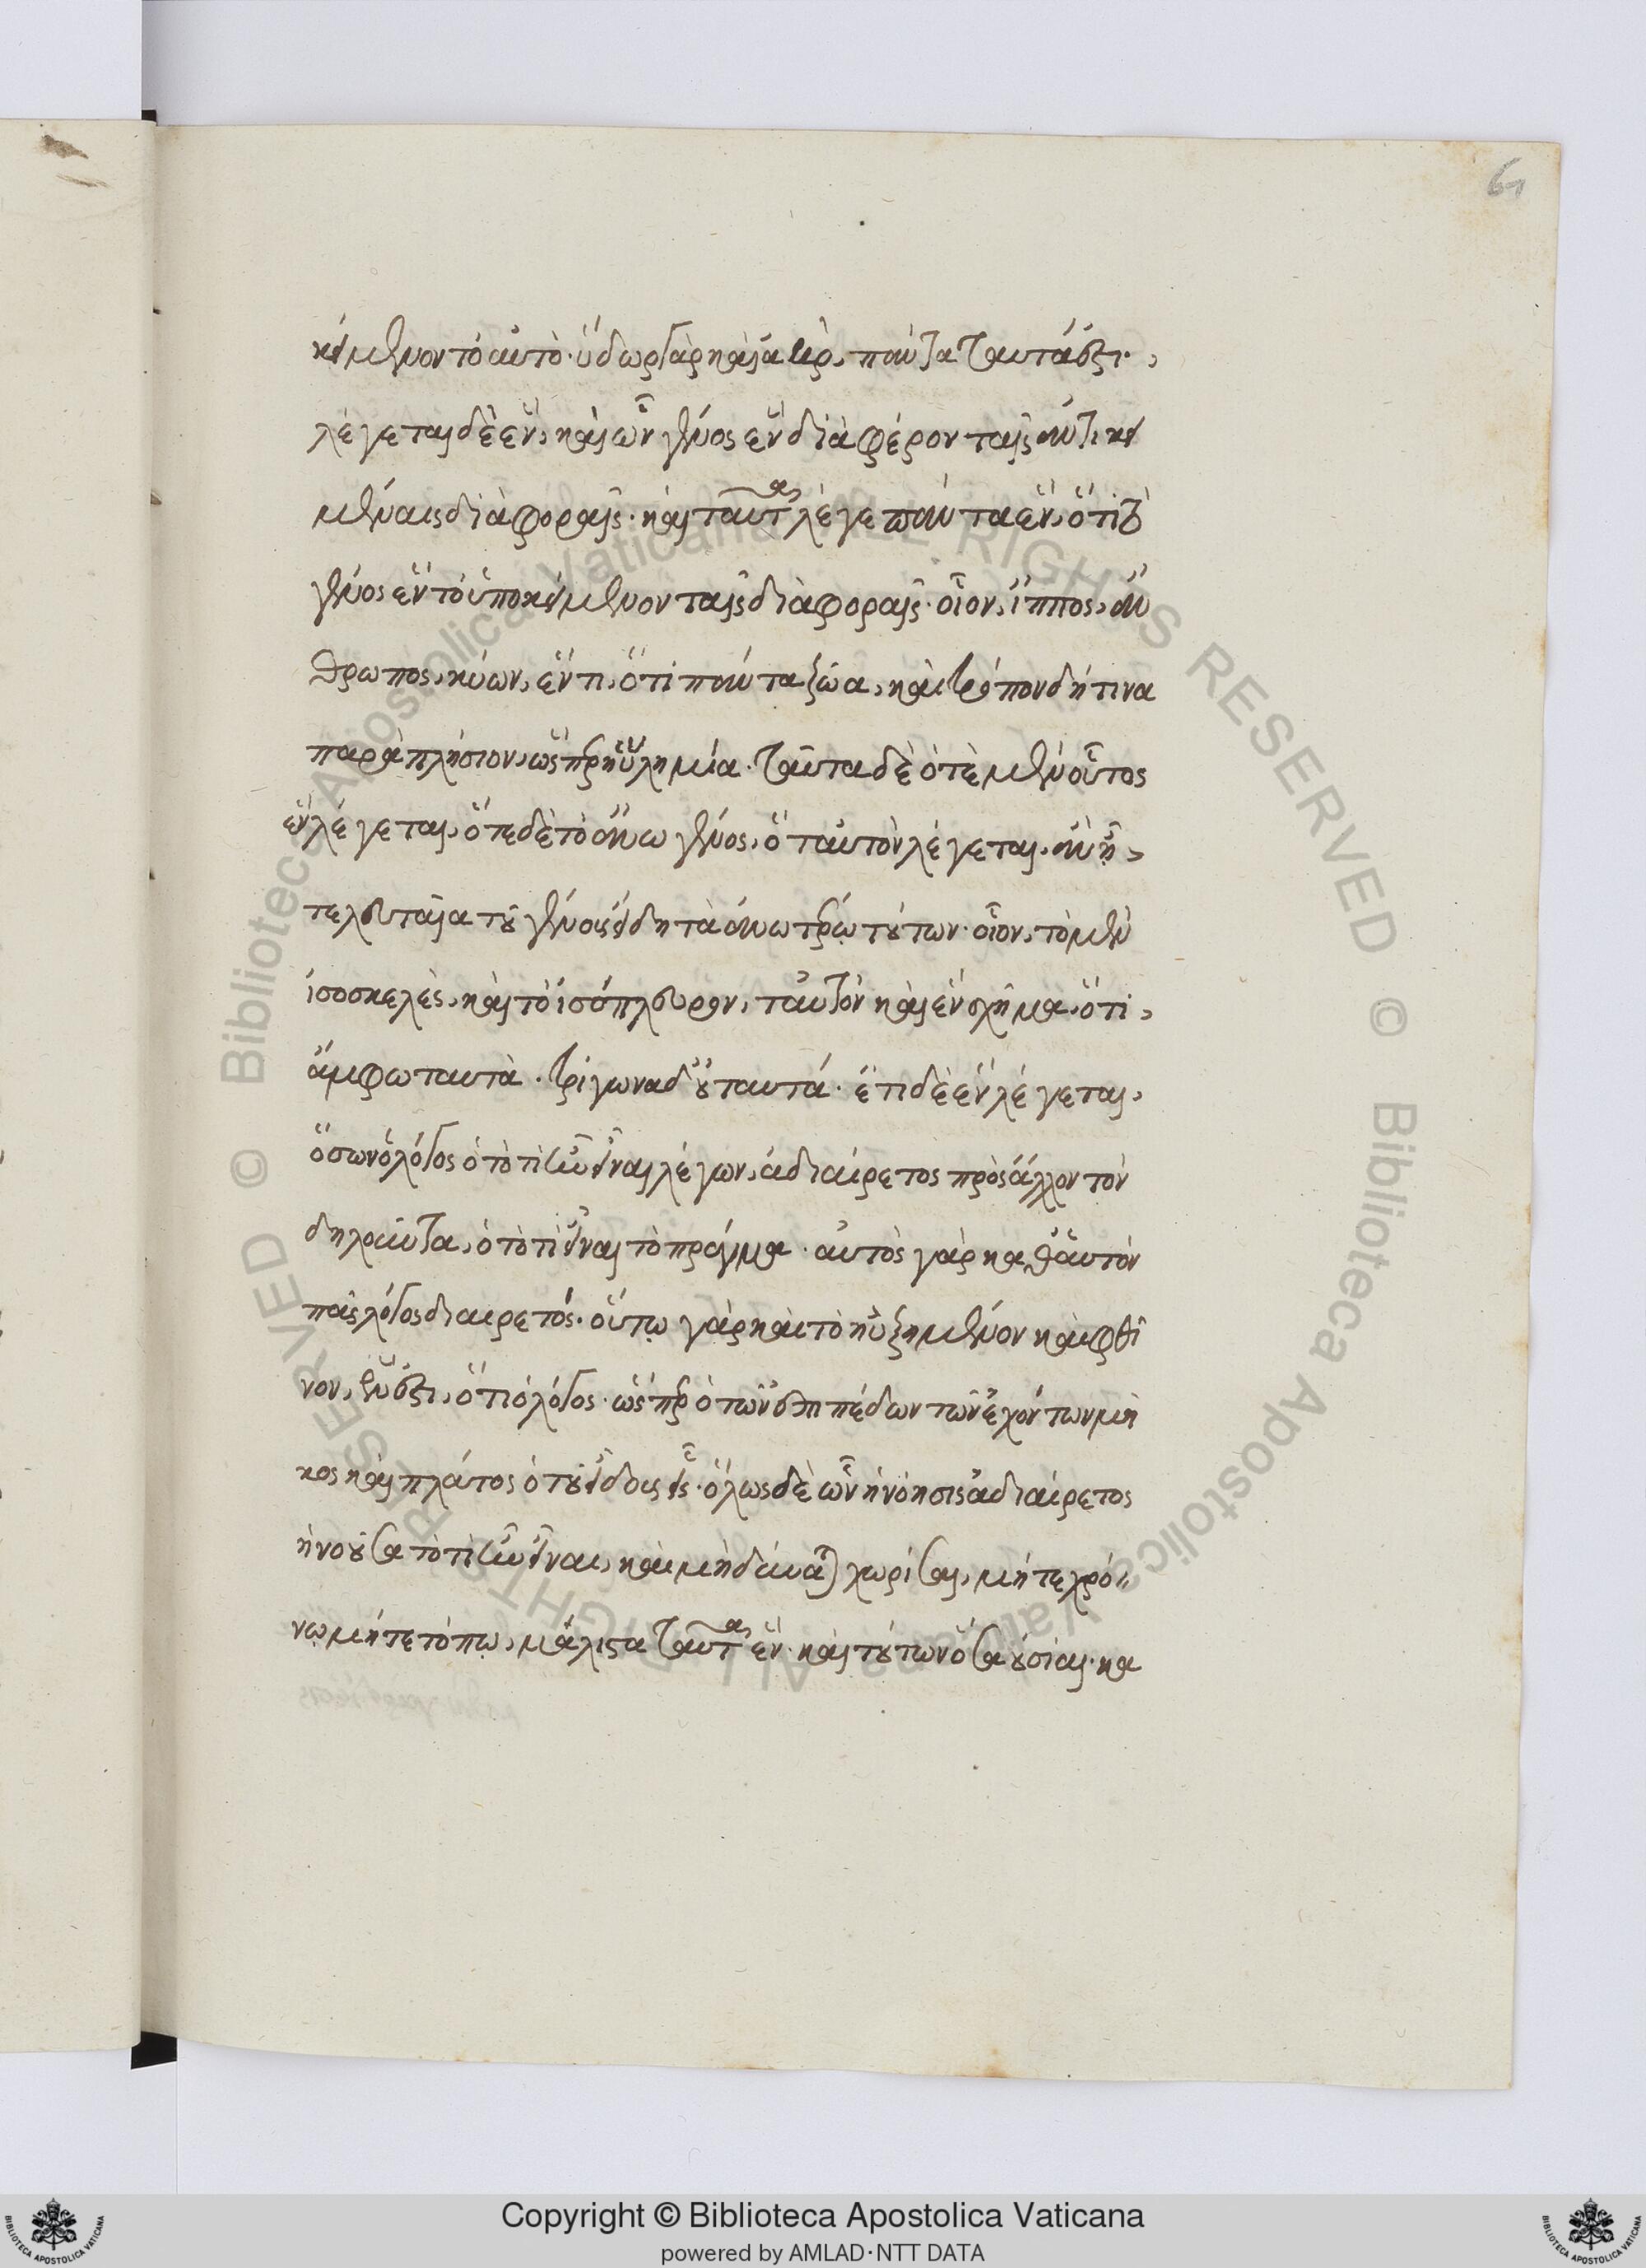 6
κείμενον τὸ αὐτὸ· ὕδωρ γὰρ καὶ ἀὴρ, πάντα ταυτά ἐστι·,
λέγεται δὲ ἓν, καὶ ὧν γένος ἓν διαφέρον ταῖς ἀντικει
μέναις διαφοραῖς· καὶ ταῦτα λέγε πάντα ἓν, ὅτι τὸ
γένος ἓν τὸ ὑποκείμενον ταῖς διαφοραῖς· οἷον, ἵππος, ἄν
θρωπος, κύων, ἕν τι, ὅτι πάντα ζῶα, καὶ τρόπον δή τινα
παραπλήσιον, ὥσπερ ἡ ὕλη μία· ταῦτα δὲ ὁτὲ μὲν οὗτος
ἓν λέγεται, ὁτὲ δὲ τὸ ἄνω γένος, ὃ ταὐτὸν λέγεται. ἂν ᾖ,
τελευταῖα τοῦ γένους εἴδη τὰ ἀνωτέρω τούτων· οἷον, τὸ μὲν
ἰσοσκελὲς, καὶ τὸ ἰσόπλευρον, ταὐτὸν καὶ ἓν σχῆμα, ὅτι,
ἄμφω ταυτὰ· τρίγωνα δ' οὐ ταυτά· ἔτι δὲ ἓν λέγεται,
ὅσων ὁ λόγος ὁ τὸ τί ἦν εἶναι λέγων, ἀδιαίρετος πρὸς ἄλλον τὸν
δηλοῦντα, ὁ τὸ τί εἶναι τὸ πρᾶγμα· αὐτὸς γὰρ καθ' αὑτὸν
πᾶς λόγος διαιρετός· οὕτω γὰρ καὶ τὸ ηὐξημένον καὶ φθῖ
νον, ἕν ἐστι, ὅτι ὁ λόγος· ὥσπερ ὁ τῶν ἐπιπέδων τῶν ἐχόντων μῆ
κος καὶ πλάτος ὁ τοῦ εἴδους εἷς· ὅλως δὲ ὧν ἡ νόησις ἀδιαίρετος
ἡ νοοῦσα τὸ τί ἦν εἶναι, καὶ μὴ δύναται χωρίσαι, μήτε χρό
νῳ μήτε τόπῳ, μάλιστα ταῦτα ἓν· καὶ τούτων ὅσα οὐσίαι· κα
Copyright © Biblioteca Apostolica Vaticana
powered by AMLAD·NTT DATA